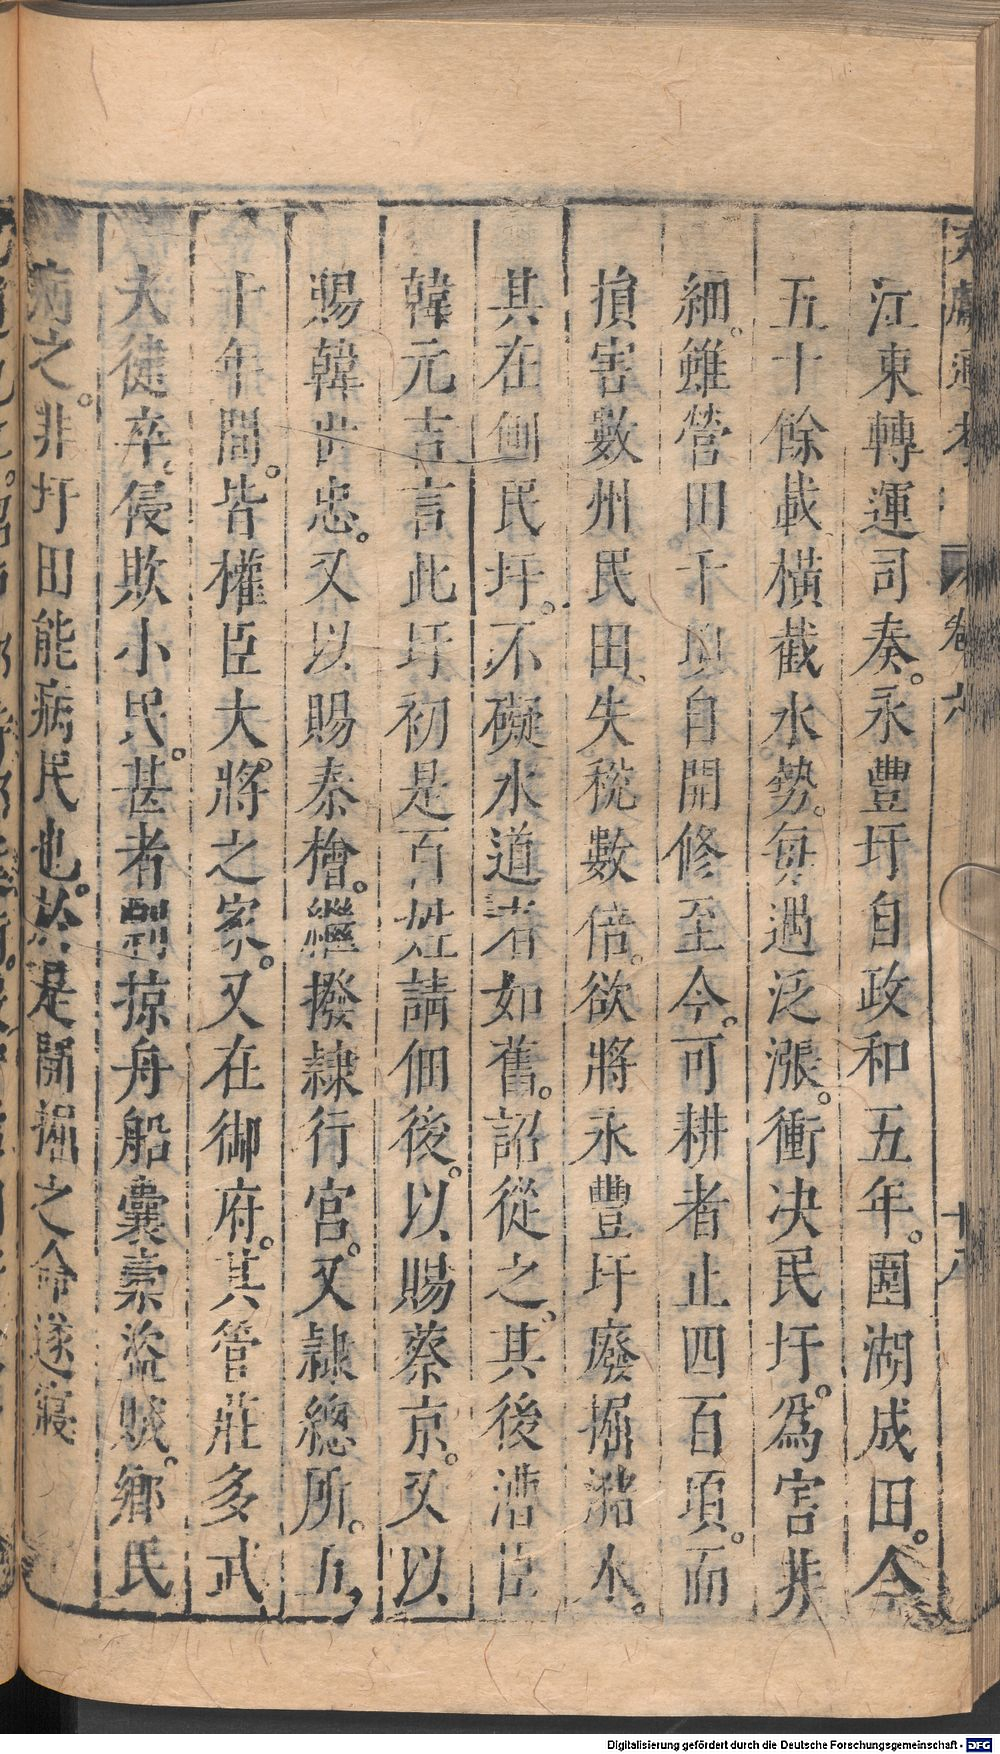 江東轉運司奏。永豐圩自政和五年。圍湖成田。今
五十餘載。橫截水勢。每遇泛漲。衝决民圩。爲害非
細。雖營田千頃。自開修至今。可耕者止四百頃。而
損害數州民田。失稅數倍。欲將永豐圩廢掘瀦水。
其在側民圩。不礙水道者如舊。詔從之。其後漕臣
韓元吉言此圩初是百姓請佃後。以賜蔡京。又以
賜韓世忠。又以賜秦檜。繼撥隷行宮。又隷總所。五
十年間。皆權臣大將之家。又在御府。其管莊多武
夫徒卒。侵欺小民。甚者剽掠舟船囊橐盜賊。鄉民
病之。非圩田能病民也。於是開掘之命遂寢
文獻通考 卷六 十八
Digitalisierung gefördert durch die Deutsche Forschungsgemeinschaft - DFG